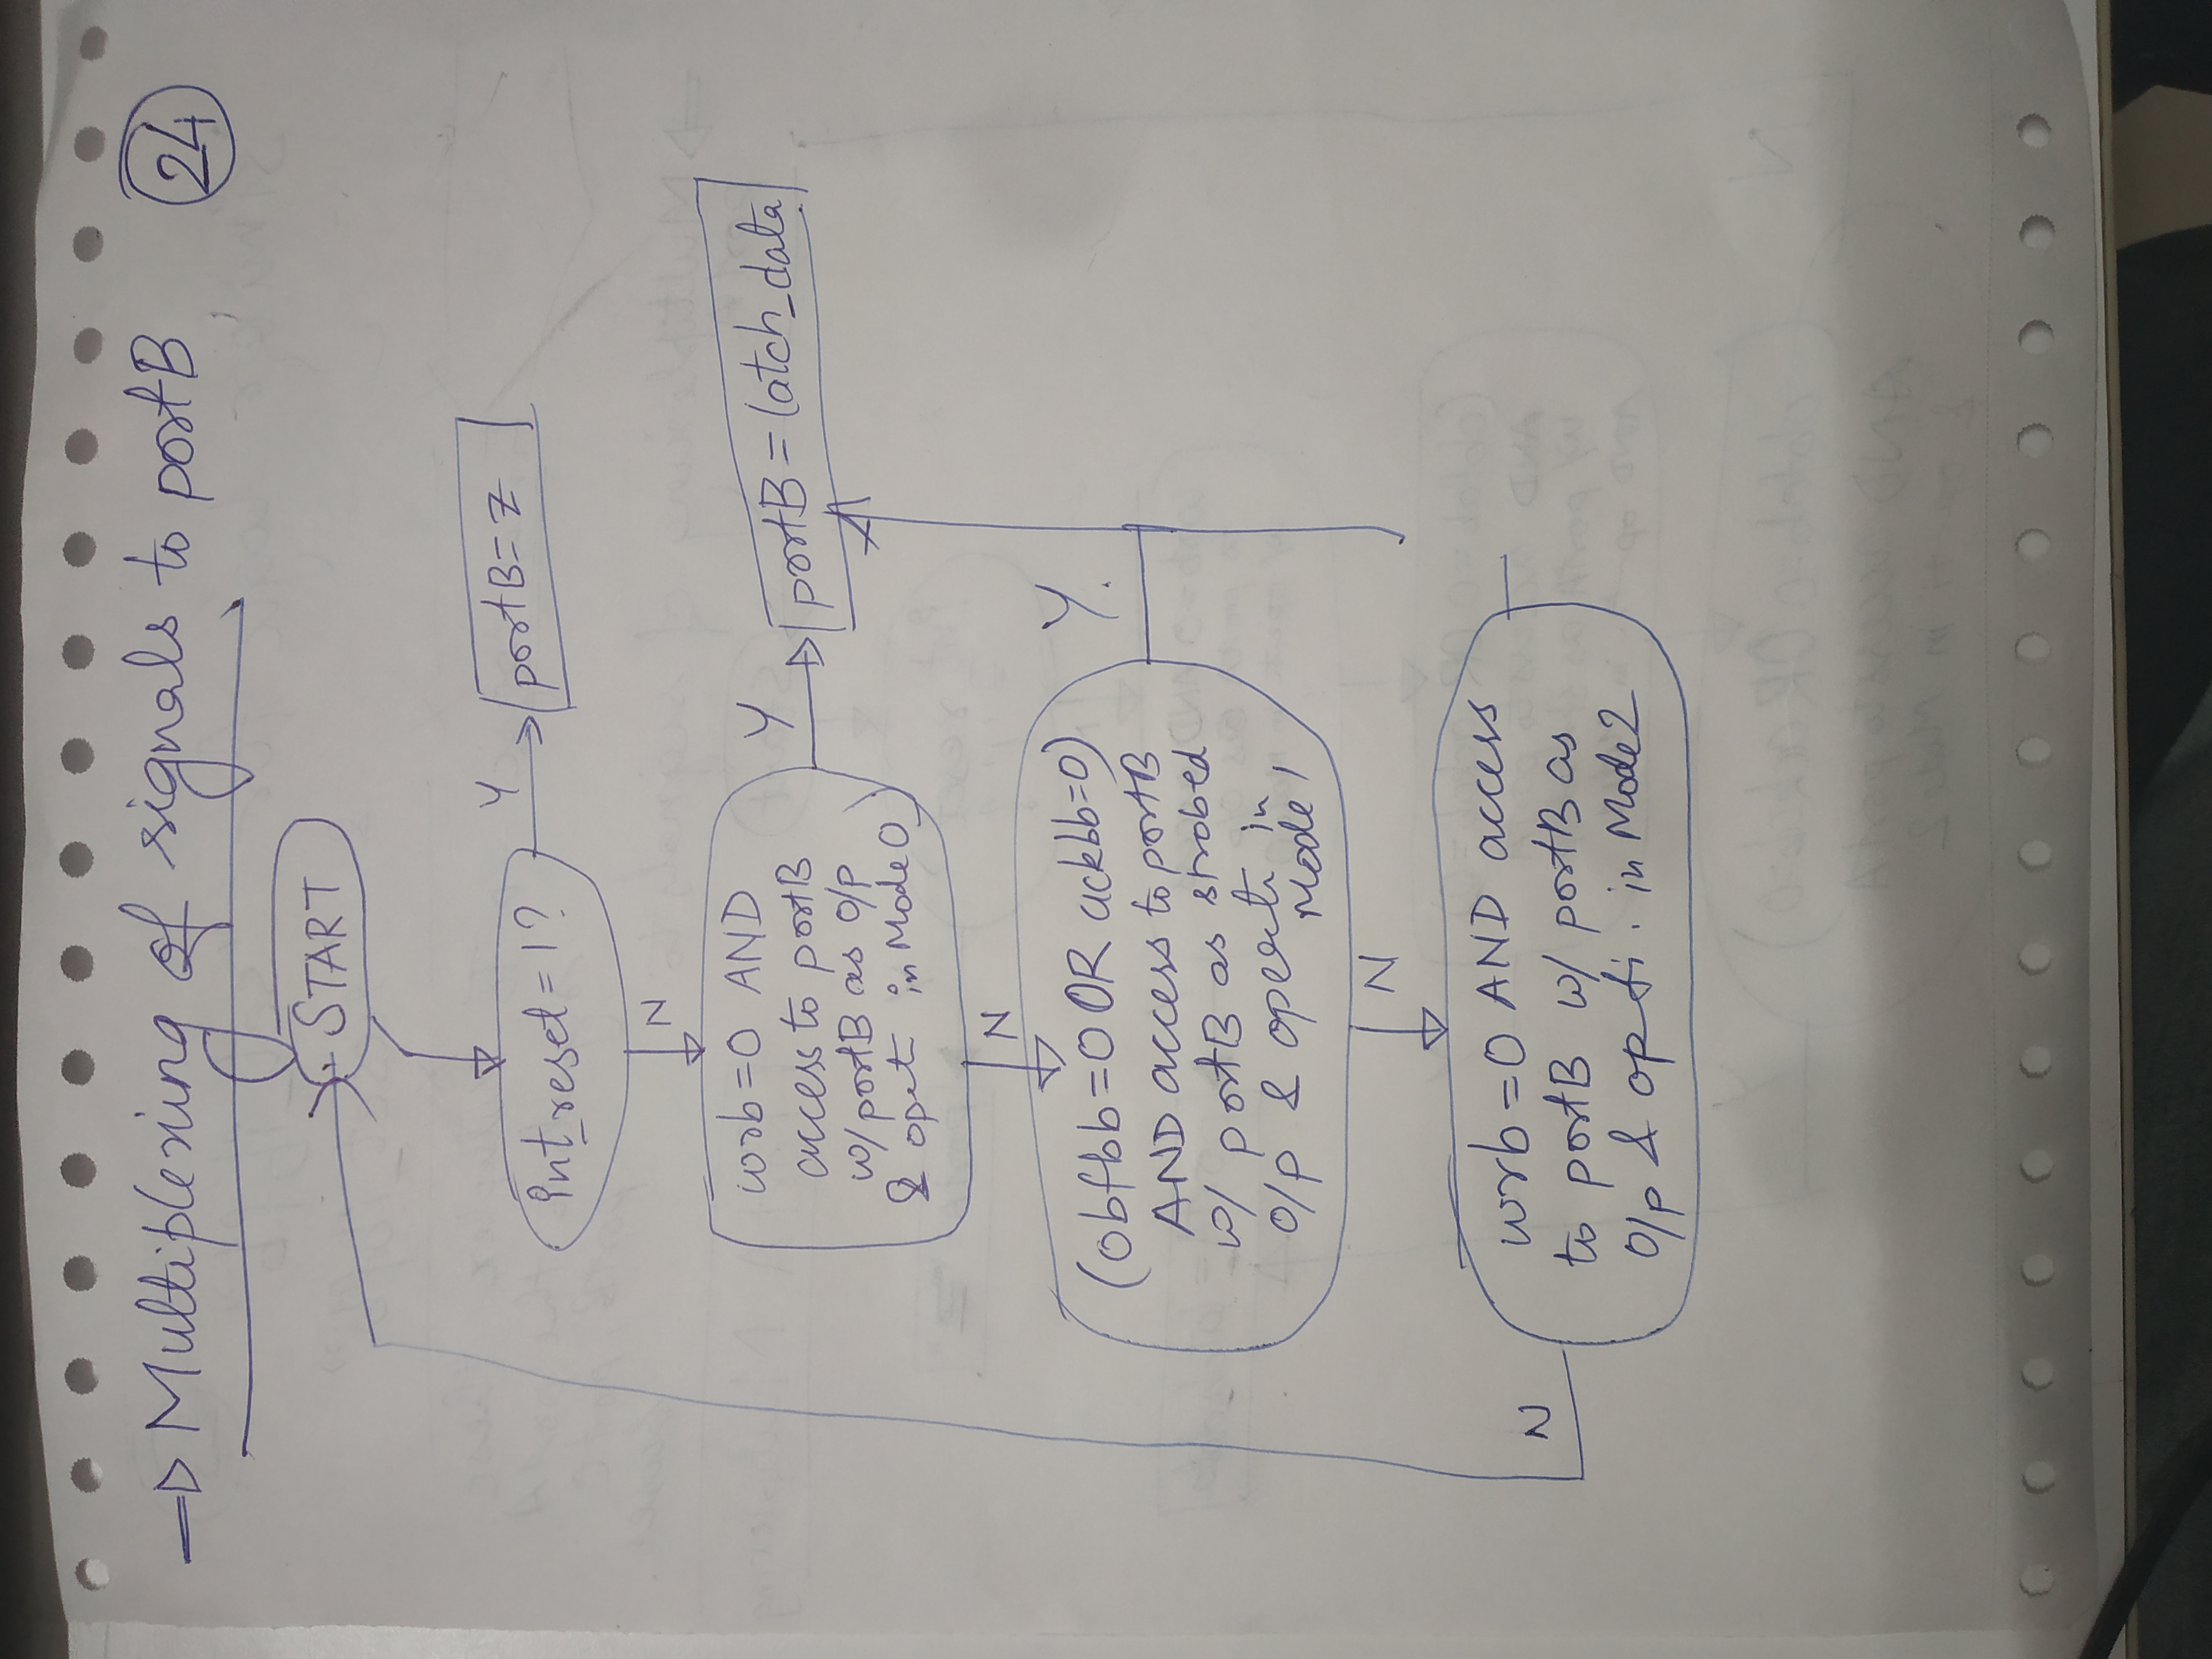 → Multiplexing of signals to portB
24
START
int_reset = 1?
Y
portB = Z
N
wrb = 0 AND
access to portB
w/ portB as O/p
& opet in Mode 0
Y
portB = latch_data
N
(obfbb = 0 OR ackbb=0)
AND access to portB
w/ portB as strobed
O/p & operate in
Mode 1
Y.
N
wrb = 0 AND access
to portB w/ portB as
O/p & op ti. in Mode 2
N